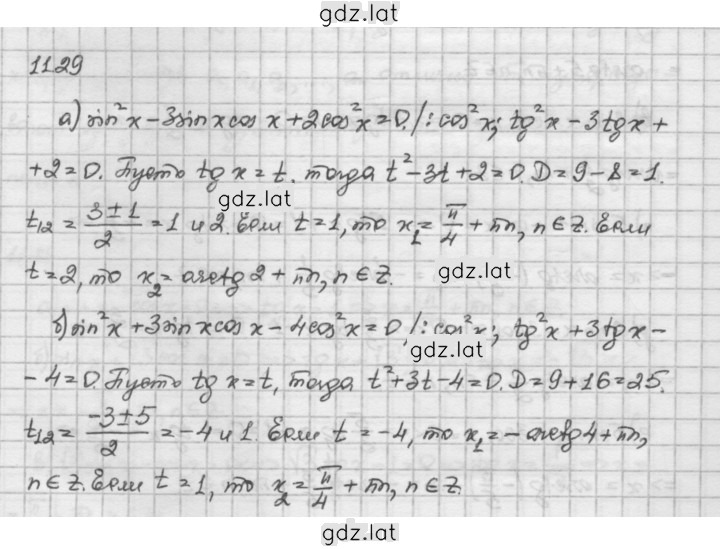 gdz.lat
1129
а) sin²x − 3sin x cos x + 2cos²x = 0. /: cos²x; tg²x − 3tg x +
+ 2 = 0. Пусть tg x = t. тогда t² − 3t + 2 = 0. D = 9 − 8 = 1.
gdz.lat
t₁₂ = (3 ± 1)/2 = 1 и 2. Если t = 1, то x₁ = π/4 + πn, n ∈ Z. Если
gdz.lat
t = 2, то x₂ = arctg 2 + πn, n ∈ Z.
б) sin²x + 3sin x cos x − 4cos²x = 0, /: cos²x; tg²x + 3tg x −
gdz.lat
− 4 = 0. Пусть tg x = t, тогда t² + 3t − 4 = 0. D = 9 + 16 = 25.
t₁₂ = (−3 ± 5)/2 = −4 и 1. Если t = −4, то x₁ = − arctg 4 + πn,
gdz.lat
n ∈ Z. Если t = 1, то x₂ = π/4 + πn, n ∈ Z.
gdz.lat